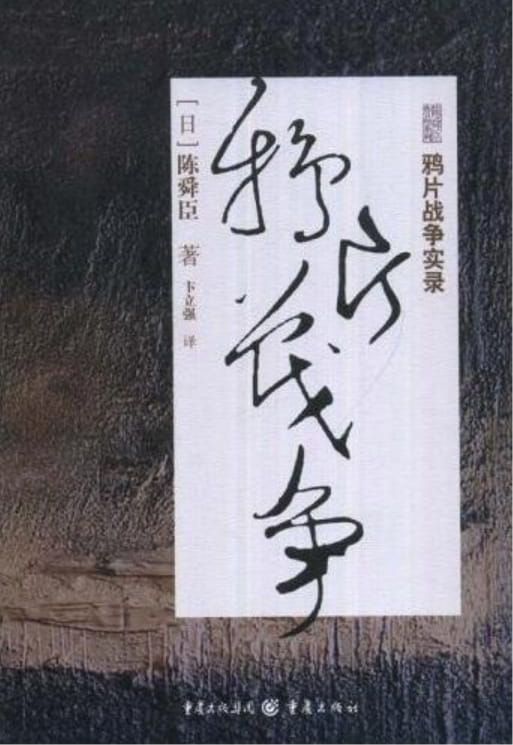 鸦片战争实录
鸦片战争
[日]陈舜臣 著
卞立强 译
重庆出版集团 重庆出版社